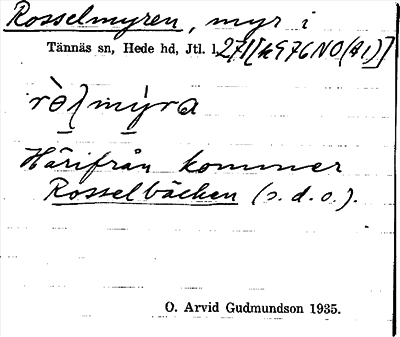 Rosselmyren, myr i
Tännäs sn, Hede hd, Jtl. l. 271[k976NO(A1)]
Härifrån kommer
Rosselbäcken (s. d. o.).
O. Arvid Gudmundson 1935.